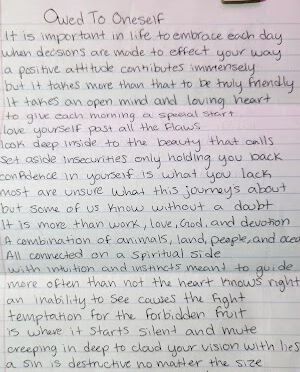 Owed To Oneself
It is important in life to embrace each day
when decisions are made to effect your way
a positive attitude contributes immensely
but it takes more than that to be truly friendly
It takes an open mind and loving heart
to give each morning a special start
love yourself past all the flaws
look deep inside to the beauty that calls
set aside insecurities only holding you back
confidence in yourself is what you lack
most are unsure what this journeys about
but some of us know without a doubt
It is more than work, love, God, and devotion
A combination of animals, land, people, and ocea
All connected on a spiritual side
with intuition and instincts meant to guide
more often than not the heart knows right
an inability to see causes the fight
temptation for the forbidden fruit
is where it starts silent and mute
creeping in deep to cloud your vision with lies
a sin is destructive no matter the size